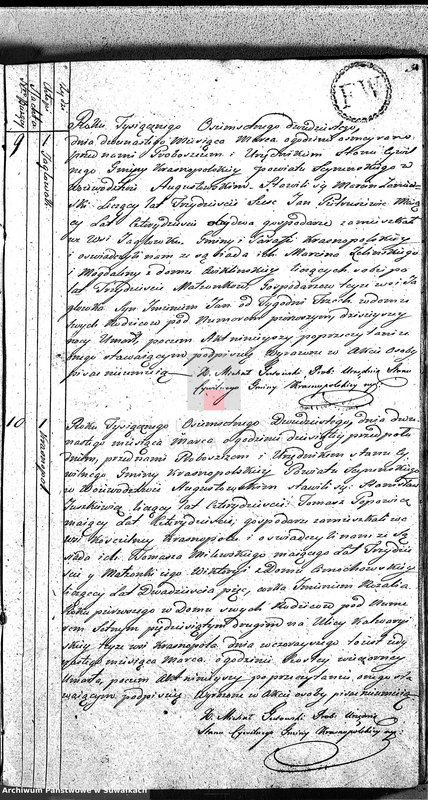 FW
9
Jagłowek
Roku Tysiącznego Osiemsetnego dwudziestego,
dnia dwunastego Miesiąca Marca o godzinie osmey rano
przed nami Proboszczem i Urzędnikiem Stanu Cywil
nego Gminy Krasnopolskiey powiatu Seynenskiego w
Wojewodztwie Augustowskim. Stawili się Marcin
ski liczący lat Trzydzieści Szesc Jan Pietrusiewicz Maią
cy Lat Czterdzieści dwa gospodarze zamieszkali
we Wsi Jagłowku, Gminy i Parafii Krasnopolskiey
i oswiadczyli nam ze są Marcina Zelinskiego
i Magdaliny z domu liczących sobie po
lat Trzydzieści Małżonków Gospodarzow teyze wsi Ja
głowka Syn Imieniem Jan od Tygodni Trzech w domu
swych Rodzicow pod Numerem pierwszym, dzisieyszey
nocy Umarł, poczem Akt ninieyszy po przeczytaniu ze
znego stawaiącym podpisuię Wyrazone w Akcie Osoby
pisać nieumieią
X. Michał Prob: Urzędnik Stanu
Cywilnego Gminy Krasnopolskiey mp:
10
Krasnopol
Roku Tysiącznego Osiemsetnego Dwudziestego, dnia dwu
nastego miesiąca Marca o godzinie dziesiątey przed połu
dniem, przed nami Proboszczem i Urzędnikiem stanu Cy
wilnego Gminy Krasnopolskiey Powiatu Seynenskiego
w Woiewodztwie Augustowskim stawili się: Stanisław
Juszkiewicz liczący lat Czterdzieści: Tomasz
maiący Lat Czterdzieści; gospodarze zamieszkali we
wsi Koscielney Krasnopolu i oswiadczyli nam ze
siada ich Tomasza Milewskiego maiącego Lat Trzydzie
ści y Małżonki iego Wiktoryi z Domu
liczącey Lat Dwadzieścia pięc, corka Imieniem Rozalia
Roku pierwszego w Domu swych Rodzicow pod Nume
rem Setnym piędziesiątym drugim na Ulicy Kalwaryi
skiey teyze wsi Krasnopola dnia wczorayszego to iest iedy
nastego miesiąca Marca o godzinie Szostey wieczorney
Umarła, poczem Akt ninieyszy po przeczytaniu onego sta
waiącym podpisuię Wyrazone w Akcie osoby pisać nieumieią
X. Michał Prob: Urzędnik
Stanu Cywilnego Gminy Krasnopolskiey mp:
Archiwum Państwowe w Suwałkach